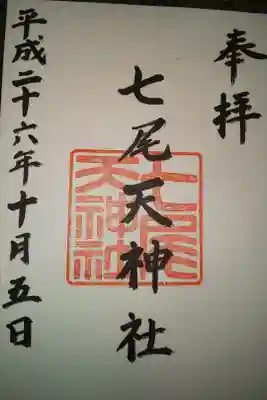 奉拝
七尾天神社
七尾天神社
平成二十六年十月五日